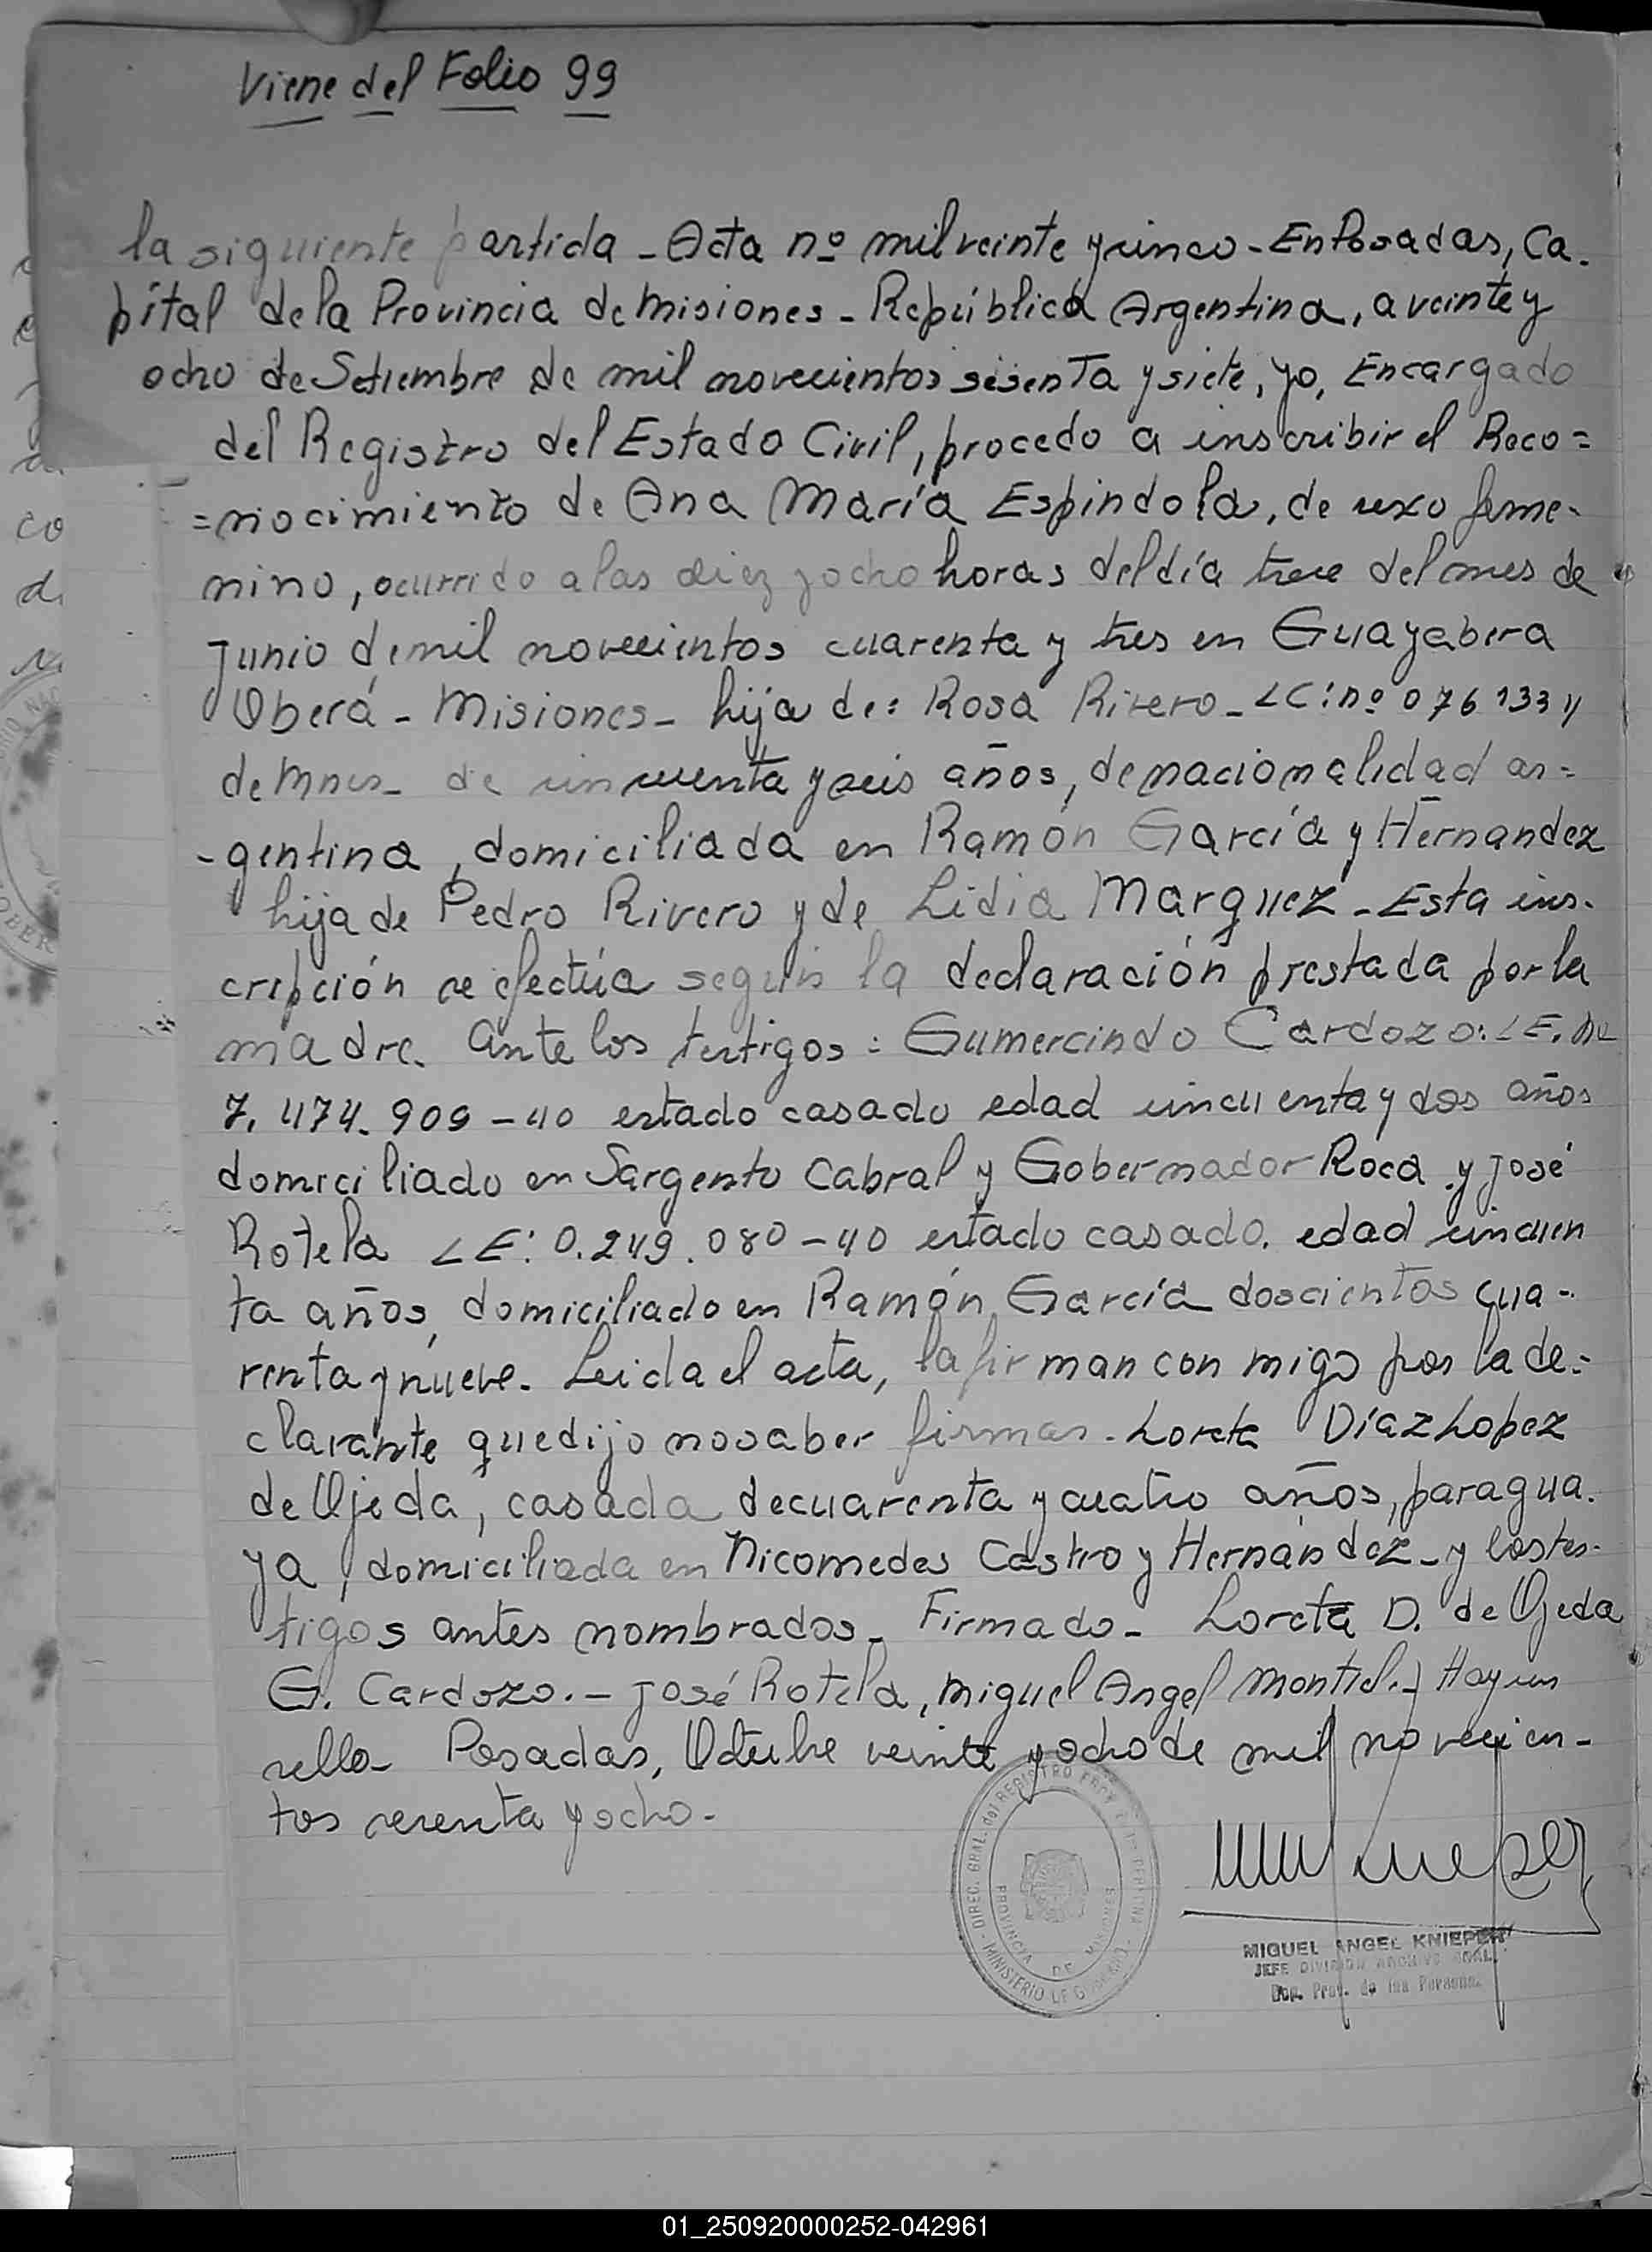 Viene del Folio 99
la siguiente partida - Acta nº mil veinte y cinco - En Posadas, Ca-
pital de la Provincia de Misiones - República Argentina, a veinte y
ocho de Setiembre de mil novecientos sesenta y siete, yo, Encargado
del Registro del Estado Civil, procedo a inscribir el Reco=
=nocimiento de Ana María Espindola, de sexo feme-
nino, ocurrido a las diez y ocho horas del día trece del mes de
Junio de mil novecientos cuarenta y tres en Guayabera
Oberá - Misiones - hija de: Rosa Rivero - LC: nº 0761334
de Mnes - de cincuenta y seis años, de nacionalidad ar=
-gentina, domiciliada en Ramón García y Hernandez
hija de Pedro Rivero y de Lidia Marquez - Esta ins-
cripción se efectúa según la declaración prestada por la
madre. Ante los testigos: Gumercindo Cardozo: LE. nº
7.474.909 - 40 estado casado edad cincuenta y dos años
domiciliado en Sargento Cabral y Gobernador Roca y José
Rotela LE: 0.249.080 - 40 estado casado. edad cincuen
ta años, domiciliado en Ramón García doscientos cua-
renta y nueve. Leida el acta, la firman con migo por la de=
clarante que dijo no saber firmar. Loreta Díaz Lopez
de Ojeda, casada de cuarenta y cuatro años, paragua-
ya, domiciliada en Nicomedes Castro y Hernández - y los tes-
tigos antes nombrados - Firmado - Loreta D. de Ojeda
G. Cardozo. - José Rotela, Miguel Angel Montiel. - Hay un
sello - Posadas, Octubre veinte y ocho de mil novecien-
tos sesenta y ocho -
DIREC. GRAL. del REGISTRO PROV. de las PERSONAS
PROVINCIA DE MISIONES
MINISTERIO DE GOBIERNO
MIGUEL ANGEL KNIEPER
JEFE DIVISION ARCHIVO GRAL.
Dep. Prov. de las Personas
01_250920000252-042961